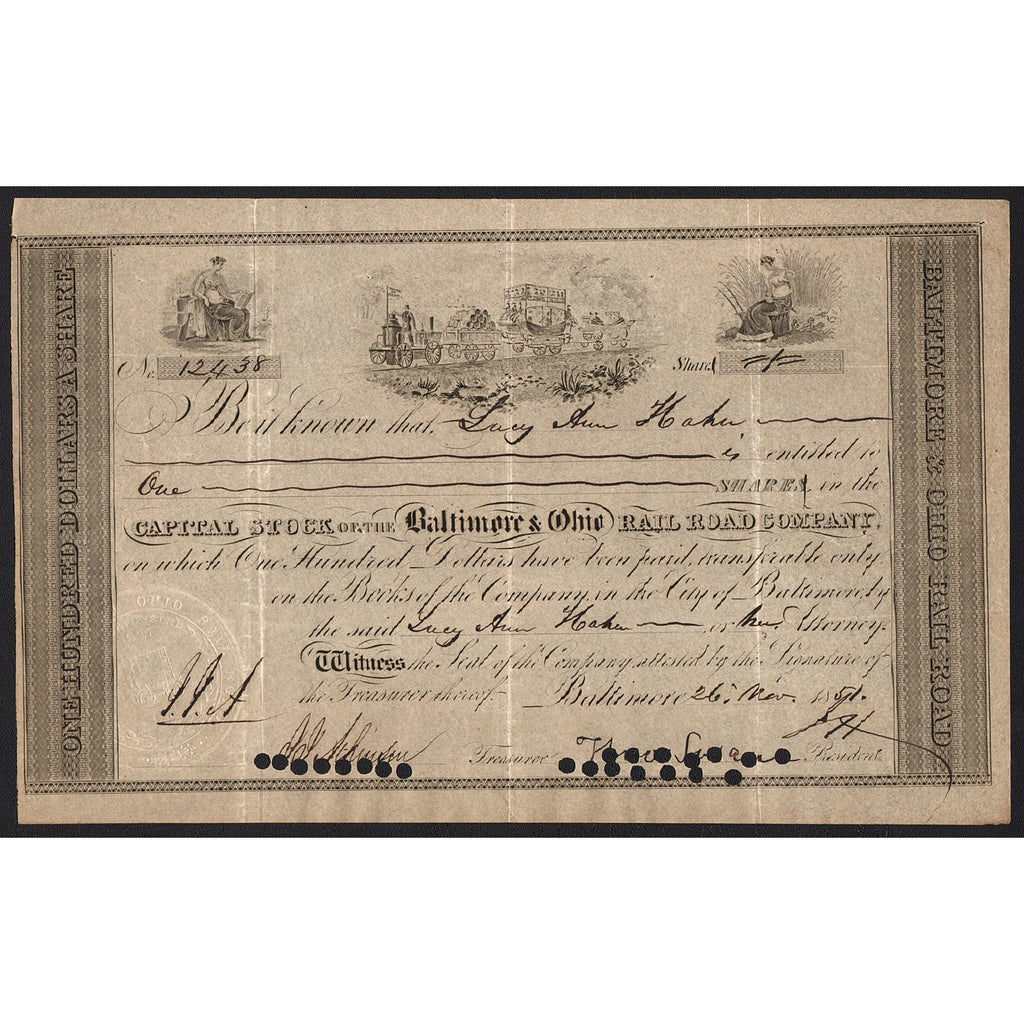 ONE HUNDRED DOLLARS A SHARE
No. 12438
Share
Be it known that, Lucy Ann
is entitled to
One SHARE in the
CAPITAL STOCK OF THE Baltimore & Ohio RAIL ROAD COMPANY,
on which One Hundred Dollars have been paid, transferable only
on the Books of the Company, in the City of Baltimore, by
the said Lucy Ann or her Attorney.
Witness the Seal of the Company, attested by the Signature of
the Treasurer thereof. Baltimore 26 Nov. 185
Treasurer Thomas Swann President
BALTIMORE & OHIO RAIL ROAD